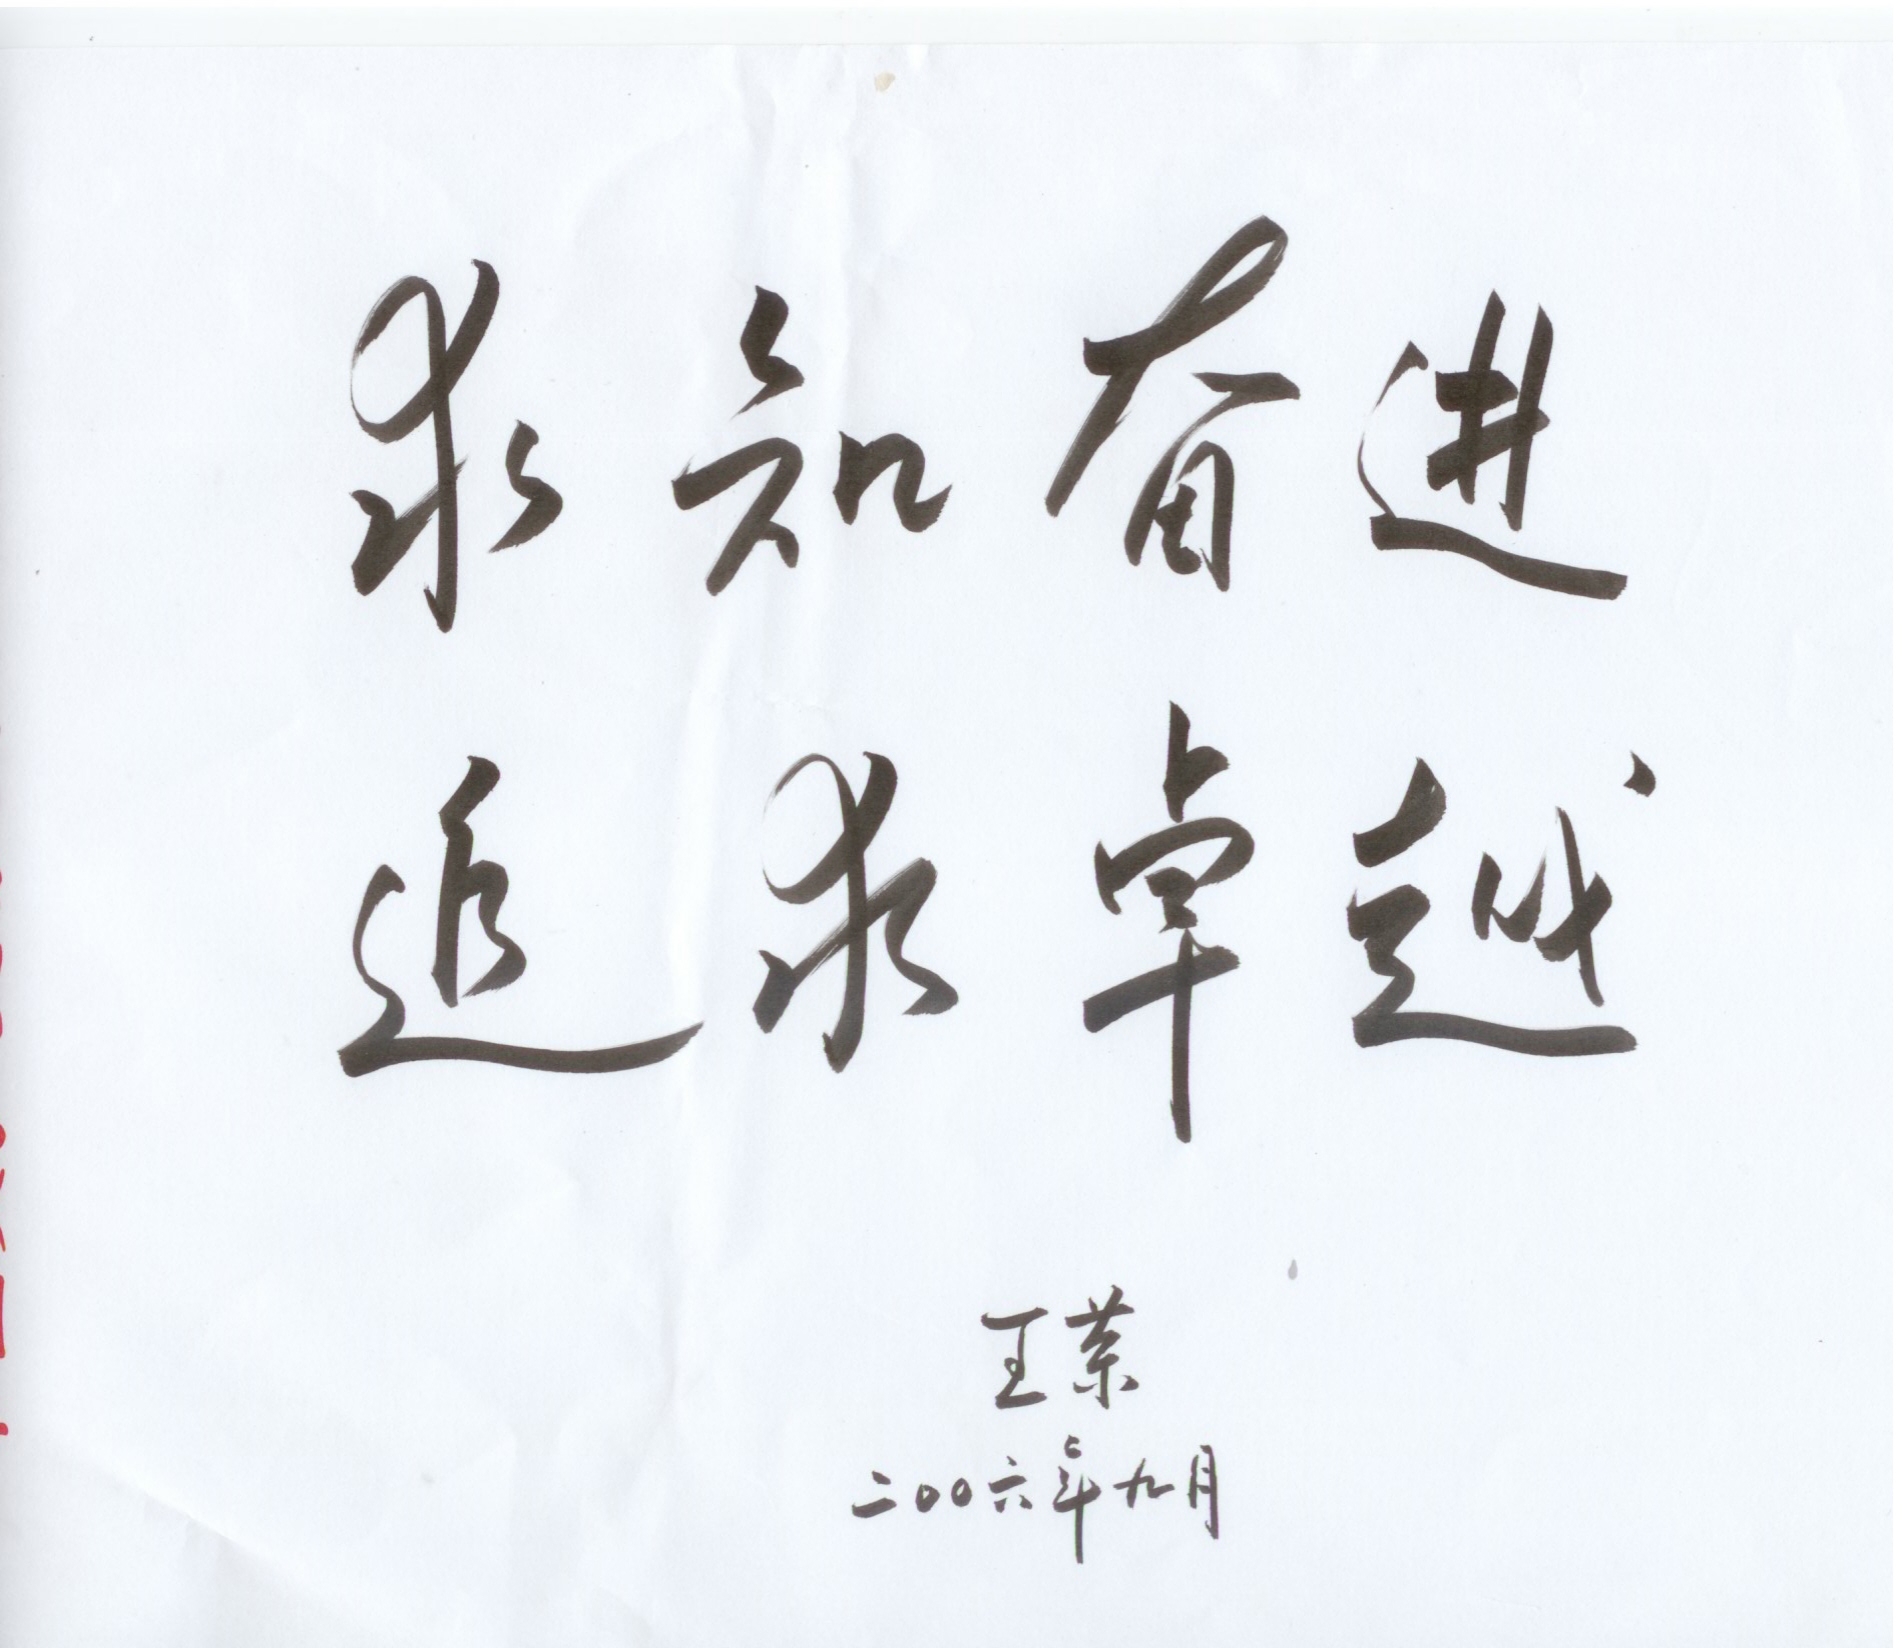 求知奋进
追求卓越
王荣
二00六年九月